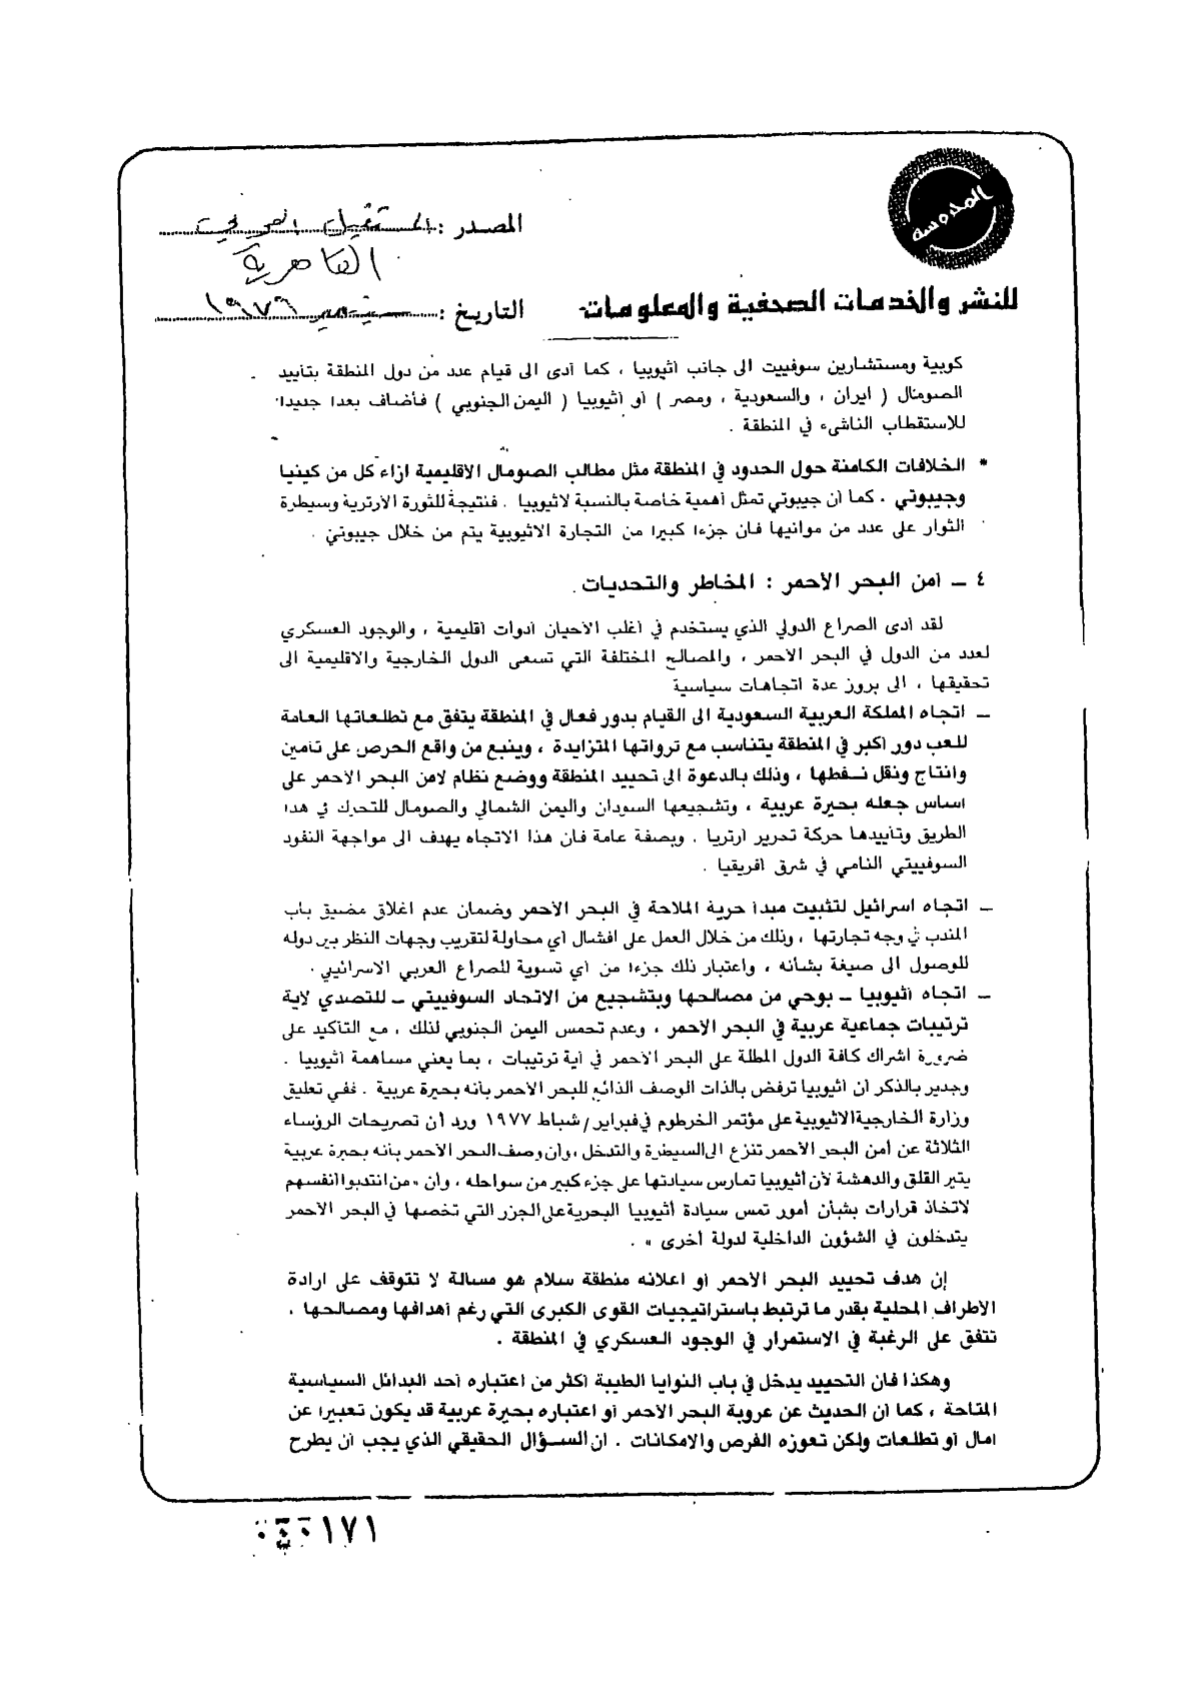 المدوسة
المصدر : المستقبل العربي
القاهرية
للنشر والخدمات الصحفية والمعلومات
التاريخ : سبتمبر ١٩٧٩
كوبية ومستشارين سوفييت الى جانب أثيوبيا ، كما أدى الى قيام عدد من دول المنطقة بتأييد
الصومال ( ايران ، والسعودية ، ومصر ) أو أثيوبيا ( اليمن الجنوبي ) فأضاف بعدا جديدا
للاستقطاب الناشىء في المنطقة .
* الخلافات الكامنة حول الحدود في المنطقة مثل مطالب الصومال الاقليمية ازاء كل من كينيا
وجيبوتي . كما أن جيبوتي تمثل أهمية خاصة بالنسبة لاثيوبيا . فنتيجة للثورة الارترية وسيطرة
الثوار على عدد من موانيها فان جزءا كبيرا من التجارة الاثيوبية يتم من خلال جيبوتي .
٤ ــ أمن البحر الأحمر : المخاطر والتحديات .
لقد أدى الصراع الدولي الذي يستخدم في أغلب الأحيان أدوات أقليمية ، والوجود العسكري
لعدد من الدول في البحر الأحمر ، والمصالح المختلفة التي تسعى الدول الخارجية والاقليمية الى
تحقيقها ، الى بروز عدة اتجاهات سياسية
ــ اتجاه المملكة العربية السعودية الى القيام بدور فعال في المنطقة يتفق مع تطلعاتها العامة
للعب دور أكبر في المنطقة يتناسب مع ثرواتها المتزايدة ، وينبع من واقع الحرص على تأمين
وانتاج ونقل نــفطها ، وذلك بالدعوة الى تحييد المنطقة ووضع نظام لامن البحر الأحمر على
اساس جعله بحيرة عربية ، وتشجيعها السودان واليمن الشمالي والصومال للتحرك في هذا
الطريق وتأييدها حركة تحرير أرتريا . وبصفة عامة فان هذا الاتجاه يهدف الى مواجهة النفوذ
السوفييتي النامي في شرق افريقيا .
ــ اتجاه اسرائيل لتثبيت مبدأ حرية الملاحة في البحر الأحمر وضمان عدم اغلاق مضيق باب
المندب في وجه تجارتها ، وذلك من خلال العمل على افشال أي محاولة لتقريب وجهات النظر بين دوله
للوصول الى صيغة بشأنه ، واعتبار ذلك جزءا من أي تسوية للصراع العربي الاسرائيلي .
ــ اتجاه أثيوبيا ــ بوحي من مصالحها وبتشجيع من الاتحاد السوفييتي ــ للتصدي لاية
ترتيبات جماعية عربية في البحر الأحمر ، وعدم تحمس اليمن الجنوبي لذلك ، مع التأكيد على
ضرورة اشراك كافة الدول المطلة على البحر الأحمر في أية ترتيبات ، بما يعني مساهمة أثيوبيا .
وجدير بالذكر أن أثيوبيا ترفض بالذات الوصف الذائع للبحر الأحمر بأنه بحيرة عربية . ففي تعليق
وزارة الخارجية الاثيوبية على مؤتمر الخرطوم في فبراير / شباط ١٩٧٧ ورد أن تصريحات الرؤساء
الثلاثة عن أمن البحر الأحمر تنزع الى السيطرة والتدخل ، وأن وصف البحر الأحمر بأنه بحيرة عربية
يثير القلق والدهشة لأن أثيوبيا تمارس سيادتها على جزء كبير من سواحله ، وأن « من انتدبوا أنفسهم
لاتخاذ قرارات بشأن أمور تمس سيادة أثيوبيا البحرية على الجزر التي تخصها في البحر الأحمر
يتدخلون في الشؤون الداخلية لدولة أخرى » .
إن هدف تحييد البحر الأحمر أو اعلانه منطقة سلام هو مسالة لا تتوقف على ارادة
الاطراف المحلية بقدر ما ترتبط باستراتيجيات القوى الكبرى التي رغم أهدافها ومصالحها ،
تتفق على الرغبة في الاستمرار في الوجود العسكري في المنطقة .
وهكذا فان التحييد يدخل في باب النوايا الطيبة أكثر من اعتباره أحد البدائل السياسية
المتاحة ، كما أن الحديث عن عروبة البحر الأحمر أو اعتباره بحيرة عربية قد يكون تعبيرا عن
امال أو تطلعات ولكن تعوزه الفرص والامكانات . ان السـؤال الحقيقي الذي يجب أن يطرح